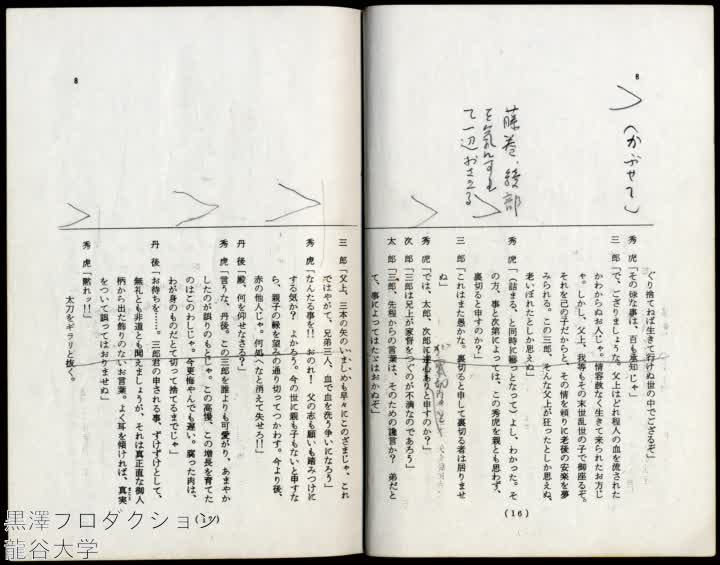 8
(かぶせて)
藤巻、綾部
を気にするも
て一辺おさえる
ぐり捨てねば生きて行けぬ世の中でござるぞ」
秀 虎「その様な事は、百も承知じゃ」
三 郎「で、ござりましょうな。父上はどれ程人の血を流された
かわからぬお人じゃ。情容赦なく生きて来られたお方じ
ゃ。しかし、父上、我等もその末世乱世の子で御座るぞ。
それを己の子だからと、その情を頼りに老後の安楽を夢
みられる。この三郎、そんな父上が狂ったとしか思えぬ、
老いぼれたとしか思えぬ」
秀 虎「(詰まる、と同時に厳っとなって)よし、わかった。そ
の方、事と次第によっては、この秀虎を親とも思わず、
裏切ると申すのか?」
三 郎「これはまた愚かな。裏切ると申して裏切る者は居りませ
ぬ」
秀 虎「では、太郎、次郎に逆心ありと申すのか?」
次 郎「三郎は兄上が家督をつぐのが不満なのであろう」
太 郎「三郎、先程からの言葉は、そのための讒言か? 弟だと
て、事によってはたゞはおかぬぞ」
(16)
8
三 郎「父上、三本の矢のいましめも早々にこのざまじゃ、これ
ではやがて、兄弟三人、血で血を洗う争いになろう」
秀 虎「なんたる事を!! おのれ! 父の志も願いも踏みつけに
する気か? よかろう。今の世に親も子もないと申すな
ら、親子の縁を望みの通り切ってつかわす。今より後、
赤の他人じゃ。何処へなと消えて失せろ!!」
丹 後「殿、何を仰せなさる?」
秀 虎「言うな、丹後。この三郎を誰よりも可愛がり、あまやか
したのが誤りのもとじゃ。この高慢、この増長を育てた
のはこのわしじゃ。今更悔やんでも遅い。腐った肉は、
わが身のものだとて切って捨てるまでじゃ」
丹 後「お待ちを……。三郎君の申される事、ずけずけとして、
無礼とも非道とも聞えましょうが、それは真正直な御人
柄から出た飾りのないお言葉。よく耳を傾ければ、真実
をついて誤ってはおりませぬ」
秀 虎「黙れッ!!」
太刀をギラリと抜く。
(17)
黒澤プロダクション
龍谷大学